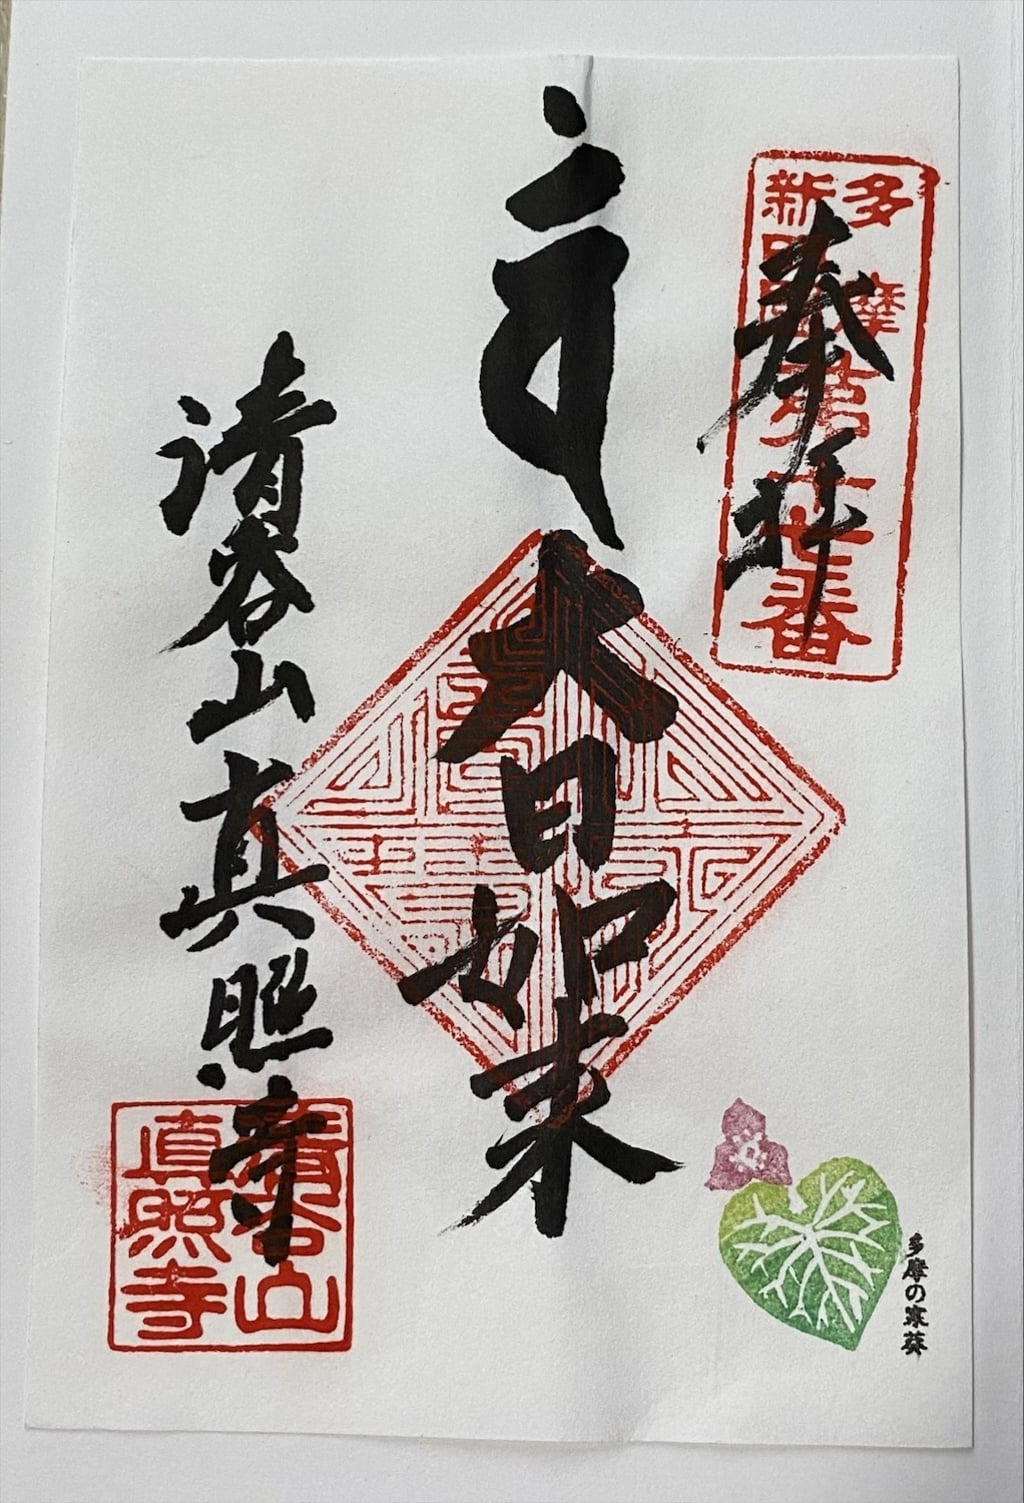 多摩
新四國
奉拝
大日如来
清谷山真照寺
清谷山
真照寺
多摩の寒葵